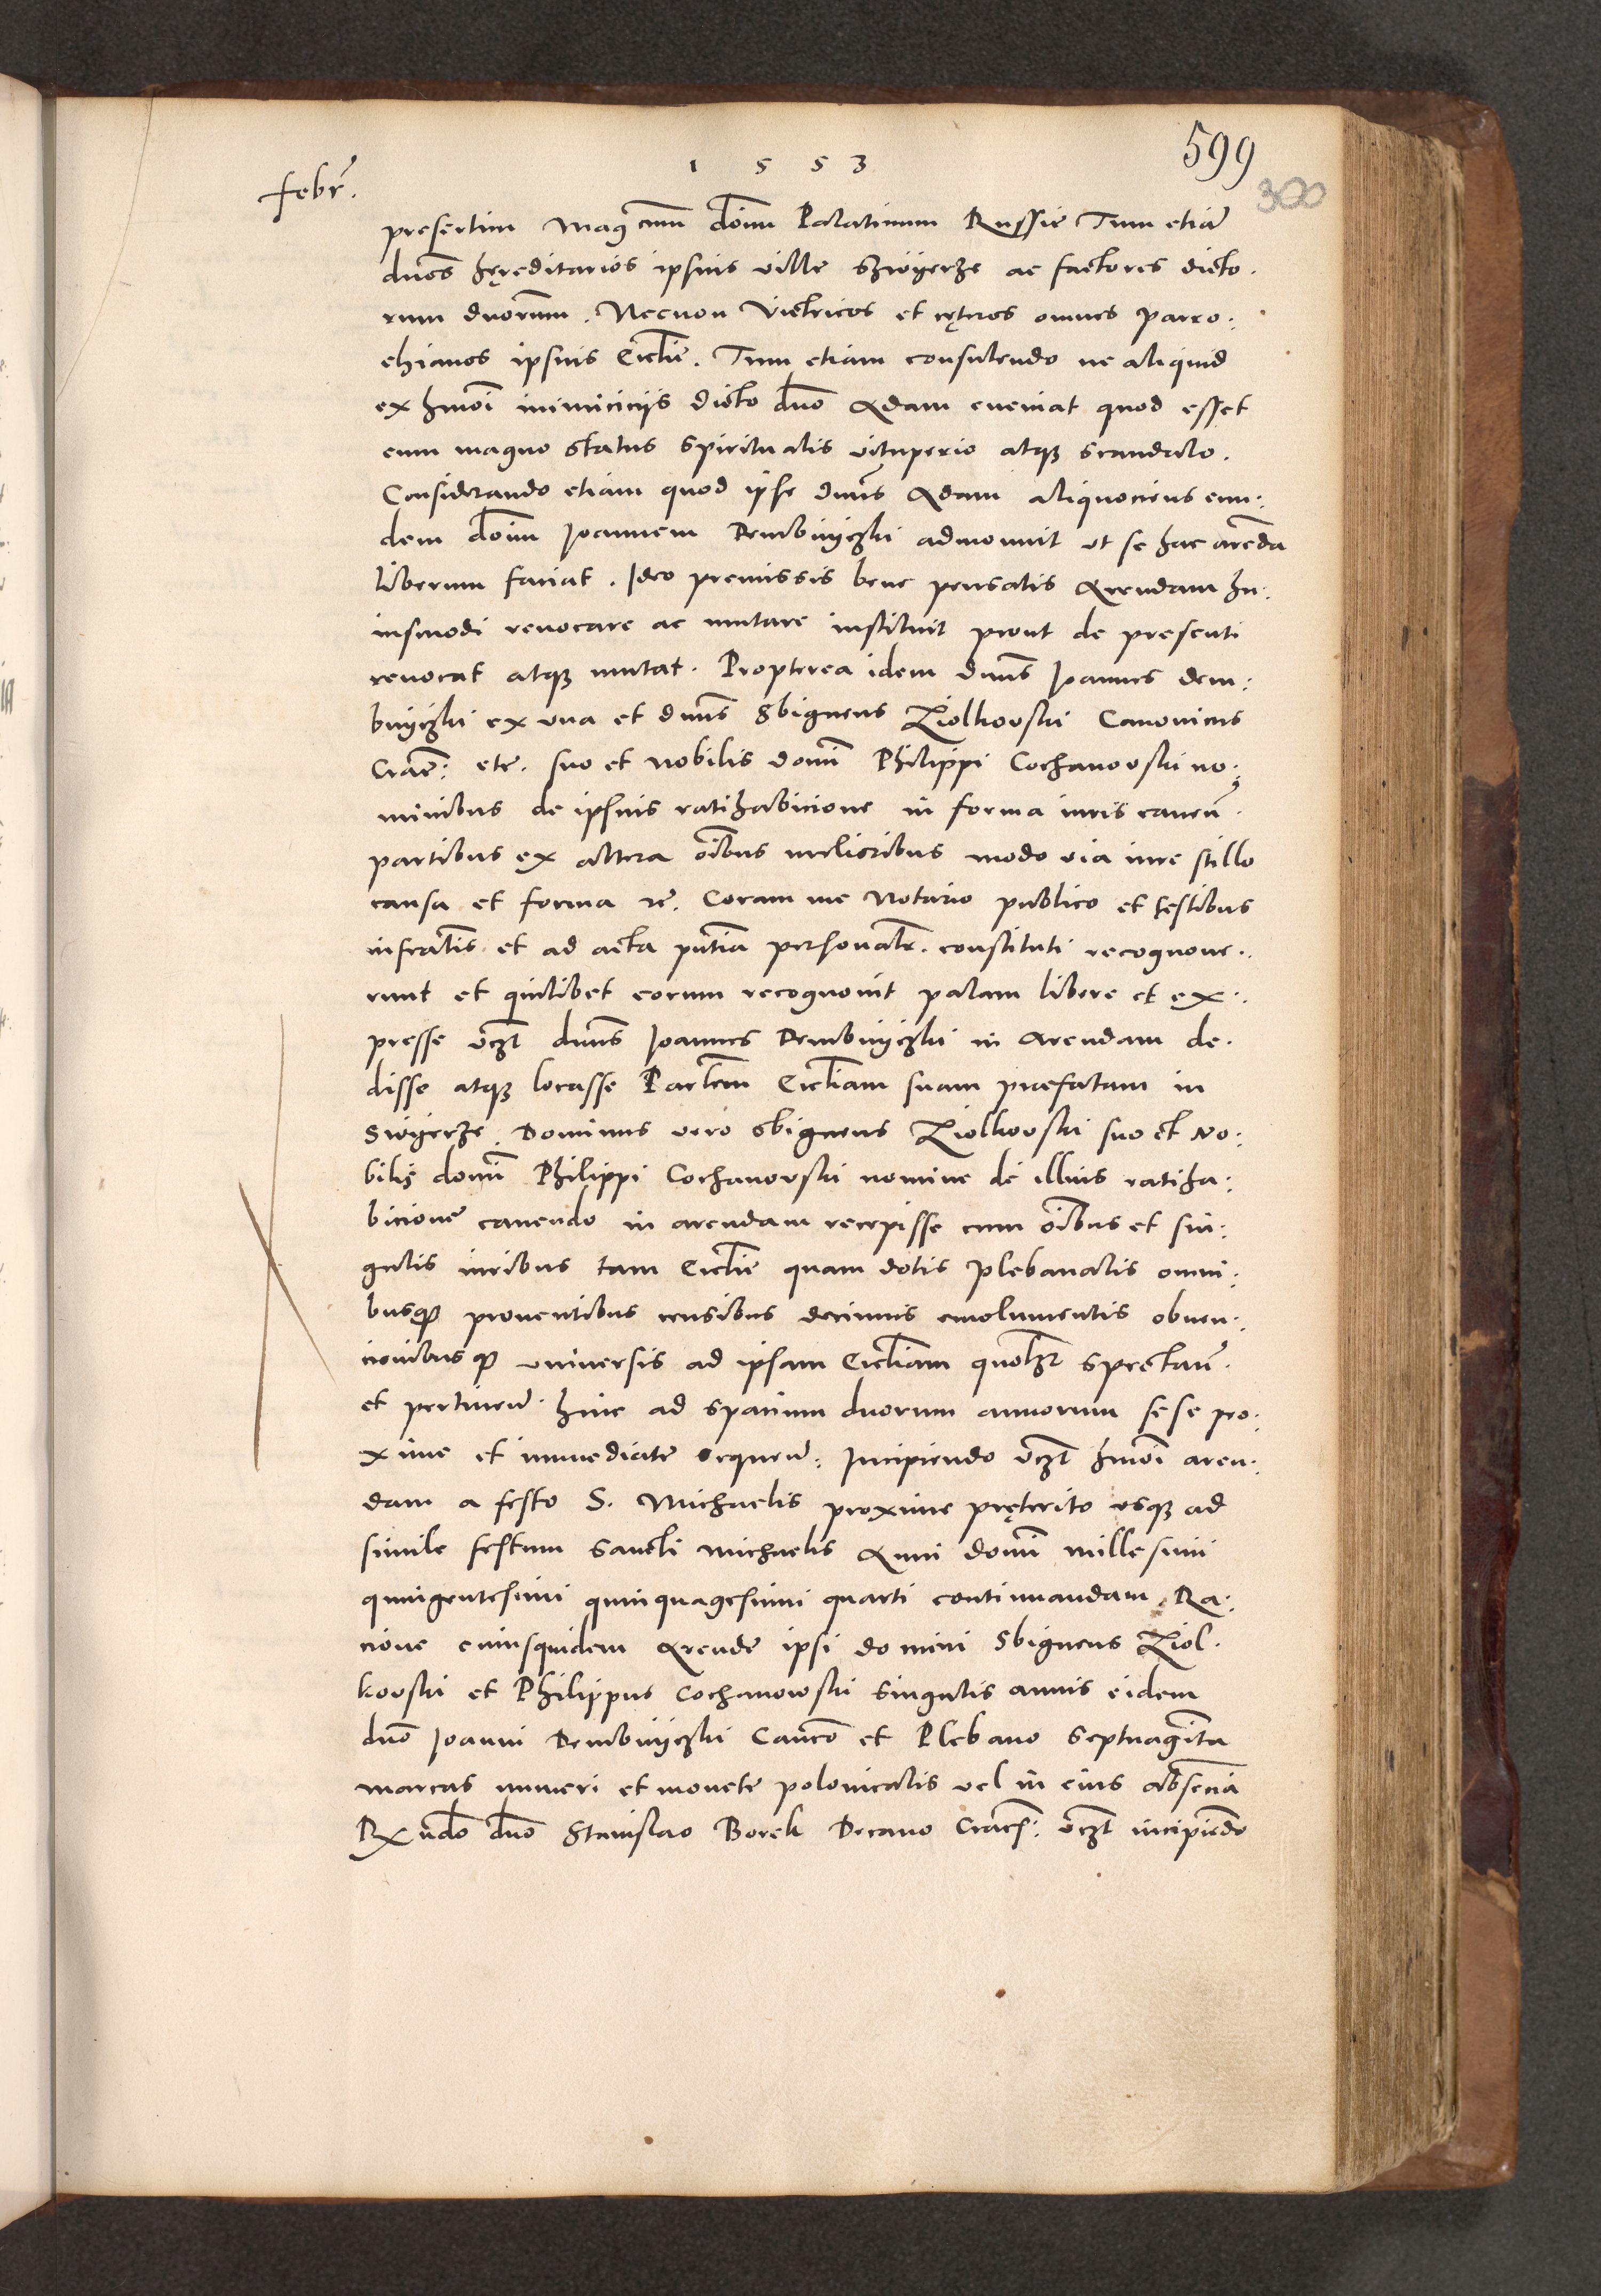 1553
599
300
Febr̃.
presertim Mag cum̃ dõim Palatinum Russie Tum etiã
duos hęreditarios ipsius ville Szwyerze ac factores dicto.
rum dnorum̃. Necnon Vietricos et cęteros omnes parro:
chianos ipsius Ecclie. Tum etiam consulendo ne aliquid
ex hmõi inimicicijs dicto dño Adam eveniat quod esset
cum magno status spiritualis vituperio atqz scandalo.
Considerando etiam quod ipse dnus Adam aliquociens eun:
dem dõim Joannem Dembinyczki admonuit ut se hac arẽda
liberum faciat. Ideo premissis bene pensatis Arendam hu:
iusmodi revocare ac mutare instituit prout de presenti
revocat atqz mutat. Propterea idem dnus Joannes dem:
binyczki ex una et dnus Sbigneus Ziolkovski Canonicus
Crac̃: etc. suo et nobilis domĩ Philippi Cochanovski no:
minibus de ipsius ratihabicione in forma iuris caveñ.
partibus ex altera oĩbus melioribus modo via iure stillo
causa et forma rẽ. Coram me Notario publico et testibus
infratis et ad acta pñtia personalr̃. constituti recognove..
runt et quilibet eorum recognovit palam libere et ex:.
presse vczt dnus Joannes Dembinyczki in Arendam de.
disse atqz locasse Parlem Ecctiam suam praefatam in
Swyerze. Dominus vero Sbigneus Ziolkovski suo et No:
bilis domĩ Philippi Cochanovski nomine de illius ratiha:
bicione cavendo in arendam recepisse cum oĩbus et sin:
gulis iuribus tam Ecctie quam dotis Plebanalis omni:
busqz proventibus censibus decimis emolumentis obven:
cionibusqz universis ad ipsam Ecctiam quoltzt spectañ.
et pertineñ. hinc ad spatium duorum annorum sese pro:
xime et immediate sequeñ: Incipiendo vczt hmõi aren:
dam a festo S. Michaelis proxime pręterito usqz ad
simile festum Sancti Michaelis Anni domĩ millesimi
quingentesimi quinquagesimi quarti continuandam. Ra:
cione cuiusquidem Arende ipsi domini Sbigneus Ziol.
kovski et Philippus Cochanowski singulis annis eidem
dño Joanni Dembinyczki Cañco et Plebano Septuagĩta
marcas numeri et monete polonicalis vel in eius absẽcia
Rxndo dño Stanislao Borek Decano Cracs̃: vczt incipiẽdo